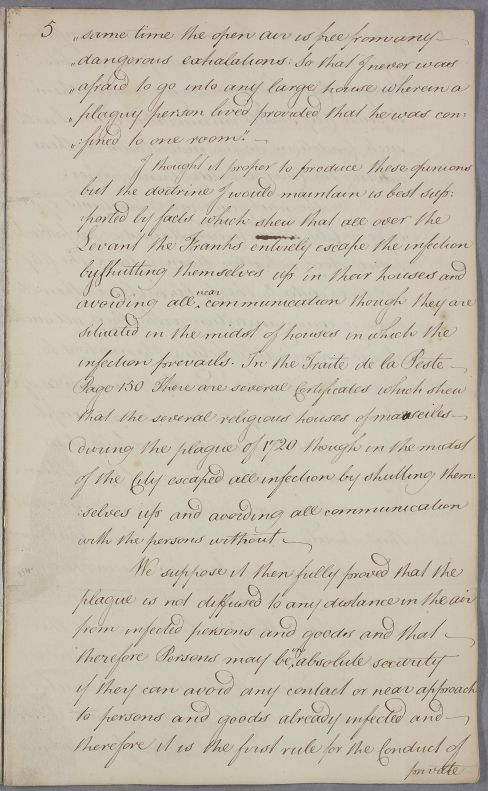 5 „same time the open air is free from any
„dangerous exhalations: So that I never was
„afraid to go into any large house wherein a
„plaguy person lived provided that he was con-
„fined to one room". —
I thought it proper to produce these opinions
but the doctrine I would maintain is best sup:
ported by facts which shew that all over the
Levant the Franks entirely escape the infection
by shutting themselves up in their houses and
near
avoiding all ‸ communication though they are
situated in the midst of houses in which the
infection prevails. In the Traite de la Peste —
Page 150 There are several Certificates which shew
that the several religious houses of marseilles —
during the plague of 1720 though in the midst
of the City escaped all infection by shutting them:
:selves up and avoiding all communication
with the persons without —
We suppose it then fully proved that the
plague is not diffused to any distance in the air
from infected persons and goods and that —
in
therefore Persons may be ‸ absolute security
if they can avoid any contact or near approach
to persons and goods already infected and —
therefore it is the first rule for the Conduct of
private